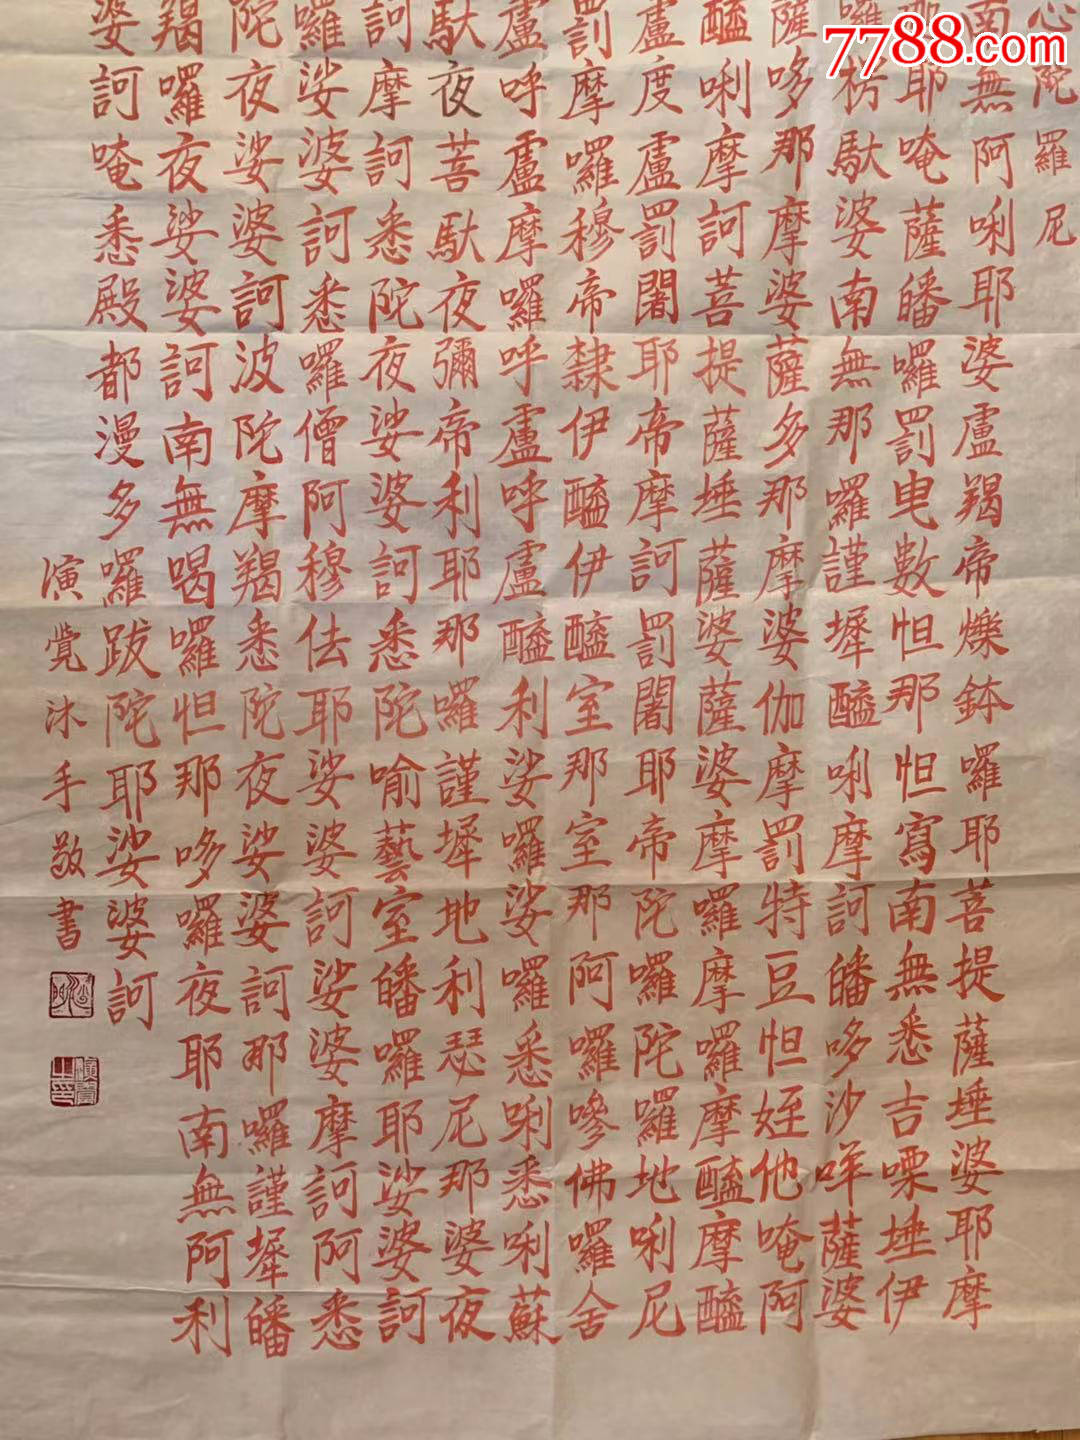 7788.com
心陀羅尼
南無阿唎耶婆盧羯帝爍鉢囉耶菩提薩埵婆耶摩
耶唵薩皤囉罰曳數怛那怛寫南無悉吉嘌埵伊
囉楞馱婆南無那囉謹墀醯唎摩訶皤哆沙咩薩婆
薩哆那摩婆薩多那摩婆伽摩罰特豆怛姪他唵阿
醯唎摩訶菩提薩埵薩婆薩婆摩囉摩囉摩醯摩醯
盧度盧罰闍耶帝摩訶罰闍耶帝陀囉陀囉地唎尼
罰摩囉穆帝隸伊醯伊醯室那室那阿囉嘇佛囉舍
盧呼盧摩囉呼盧呼盧醯利娑囉娑囉悉唎悉唎蘇
馱夜菩馱夜彌帝利耶那囉謹墀地利瑟尼那婆夜
訶摩訶悉陀夜娑婆訶悉陀喻藝室皤囉耶娑婆訶
囉娑婆訶悉囉僧阿穆佉耶娑婆訶娑婆摩訶阿悉
陀夜娑婆訶波陀摩羯悉陀夜娑婆訶那囉謹墀皤
羯囉夜娑婆訶南無喝囉怛那哆囉夜耶南無阿利
婆訶唵悉殿都漫多囉跋陀耶娑婆訶
演覺沐手敬書